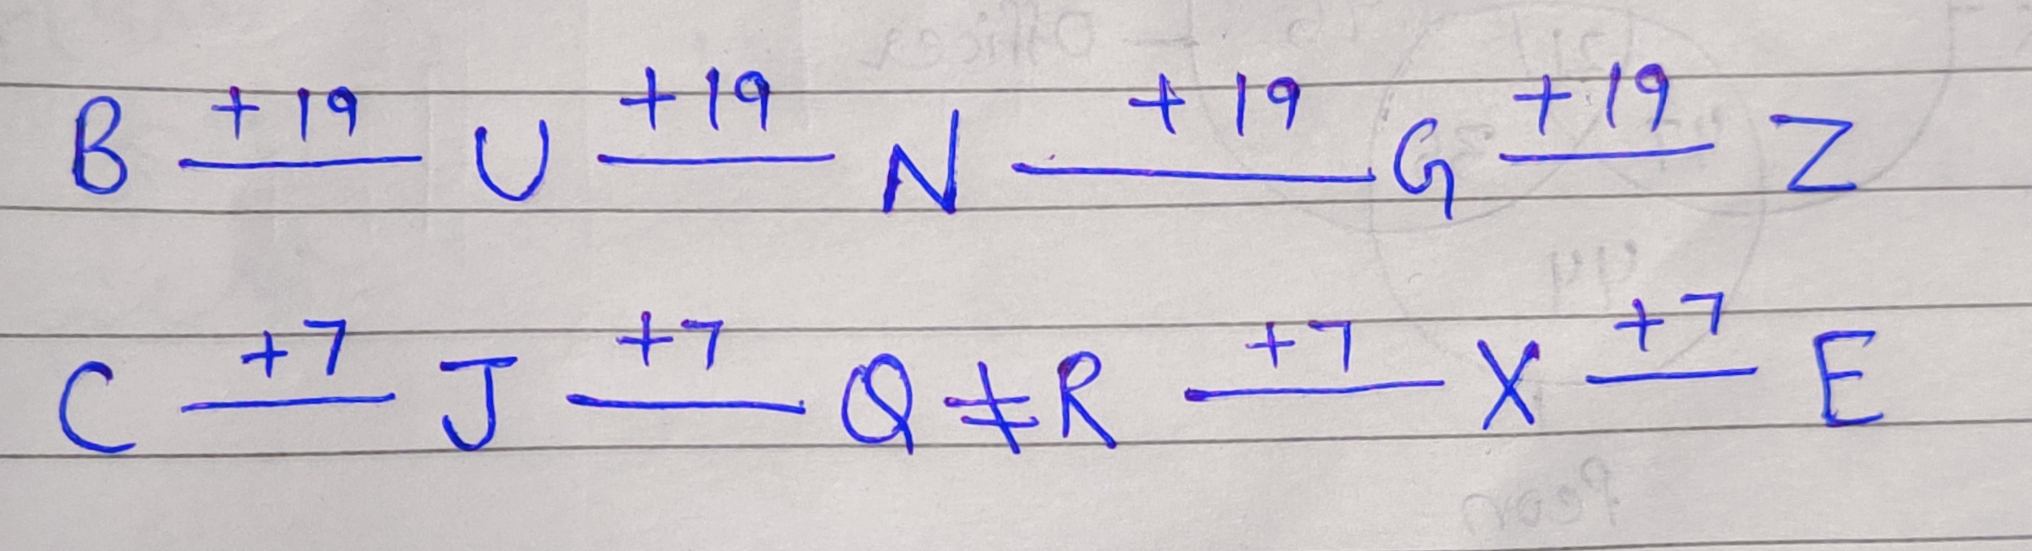 B +19 U +19 N +19 G +19 Z
C +7 J +7 Q ≠ R +7 X +7 E